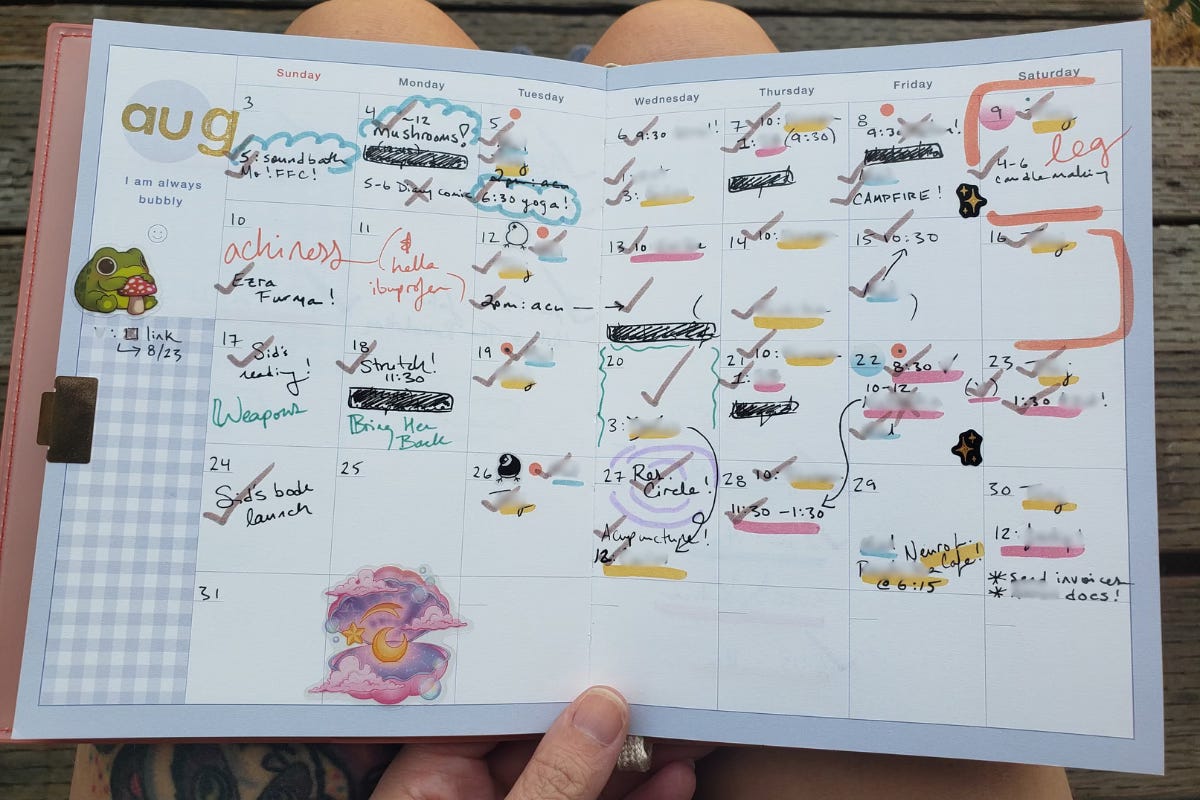 aug
I am always
bubbly
link
→ 8/23
Sunday
Monday
Tuesday
Wednesday
Thursday
Friday
Saturday
3
5: sound bath
Mo! FFC!
4
-12
Mushrooms!
5-6
5
2pm: acu
6:30 yoga!
6 9:30
1:
3:
7 10:
1: (9:30)
8
9:3
CAMPFIRE!
9
leg
4-6
candle making
10
achiness
Ezra
Furman!
11
(&
hella
ibuprofen)
12
2pm: acu →
13 10
(
14 10:
15 10:30
)
16
17
Sid's
reading!
Weapons
18
Stretch!
11:30
Bring Her
Back
19
20
3:
21 10:
1:
22 8:30
10-12
23
1:30 !
24
Sid's book
launch
25
26
27 Res.
Circle!
Acupuncture!
12:
28 10:
11:30 -1:30
29
Cafe!
@ 6:15
30
12:
* send invoices
* docs!
31